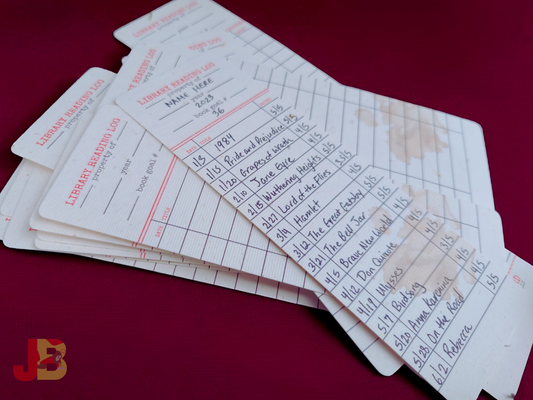 LIBRARY READING LOG
LIBRARY READING LOG
property of
LIBRARY READING LOG
property of
year
book goal #
DATE TITLE
LIBRARY READING LOG
NAME HERE
property of
2023
year
36
book goal #
1/3 1984 5/5
1/15 Pride and Prejudice 5/5
1/20 Grapes of Wrath 4/5
2/10 Jane Eyre 4/5
2/15 Wuthering Heights 5/5
2/27 Lord of the Flies 4/5
3/9 Hamlet 5/5
3/12 The Great Gatsby 5/5
3/21 The Bell Jar 5/5
4/5 Brave New World 4/5
4/12 Don Quixote 4/5
4/19 Ulysses 4/5
5/7 Birdsong 3/5
5/20 Anna Karenina 4/5
5/28 On the Road 4/5
6/2 Rebecca 5/5
JB